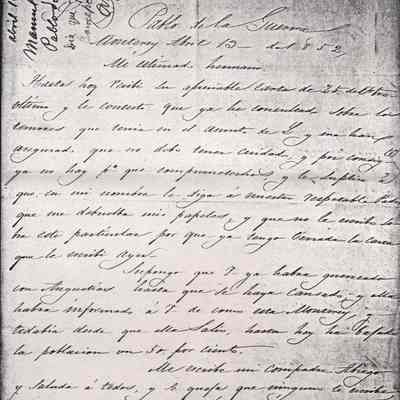 abril 1
Manuel
Pablo de
Pablo de la Guerra
Monterey Abril 13 - de 1852,
Mi estimado hermano
Hasta hoy recibi su apreciable carta de 25 del
ultimo y le contesto que ya he consultado sobre los
temores que tenia en el asunto de S. y me han
asegurado que no debe tener cuidado, y por
ya no hay pa que comprometerlos y le suplico
que en mi nombre le diga á nuestro respetable
que me debuelba mis papeles, y que no le escribo
en este particular por que ya tengo cerrada la carta
que le escribi ayer.
Supongo que V. ya habrá
con Angustias hasta que se haya cansado, y ella
habra informado á V. de como esta Monterey,
todabia desde que ella salio, hasta hoy ha
la poblacion un 50 por ciento.
Me recibi mi compadre Abrego
y saluda á todos, y se queja que ninguno le escribe